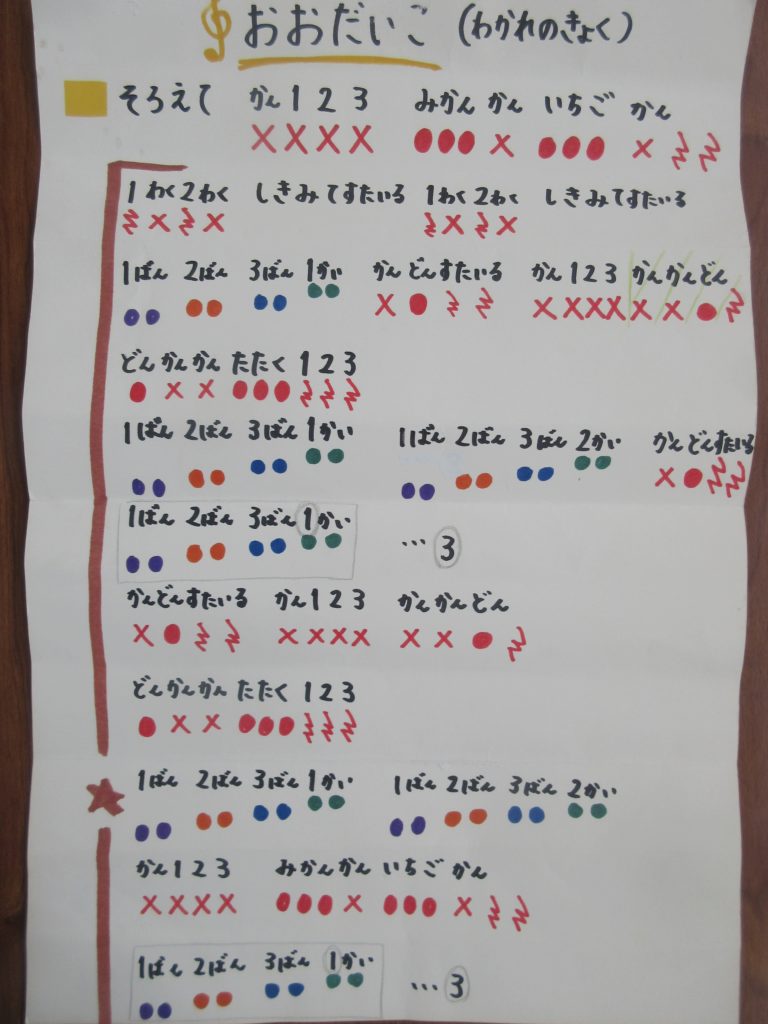 おおだいこ (わかれのきょく)
そろえて かん 1 2 3 みかん かん いちご かん
1 わく 2 わく しきみてすたいる 1 わく 2 わく しきみてすたいる
1ばん 2ばん 3ばん 1かい かんどんすたいる かん 1 2 3 かんかんどん
どんかんかん たたく 1 2 3
1ばん 2ばん 3ばん 1かい 1ばん 2ばん 3ばん 2かい かんどんすたいる
1ばん 2ばん 3ばん 1かい … 3
かんどんすたいる かん 1 2 3 かんかんどん
どんかんかん たたく 1 2 3
1ばん 2ばん 3ばん 1かい 1ばん 2ばん 3ばん 2かい
かん 1 2 3 みかんかん いちご かん
1ばん 2ばん 3ばん 1かい … 3